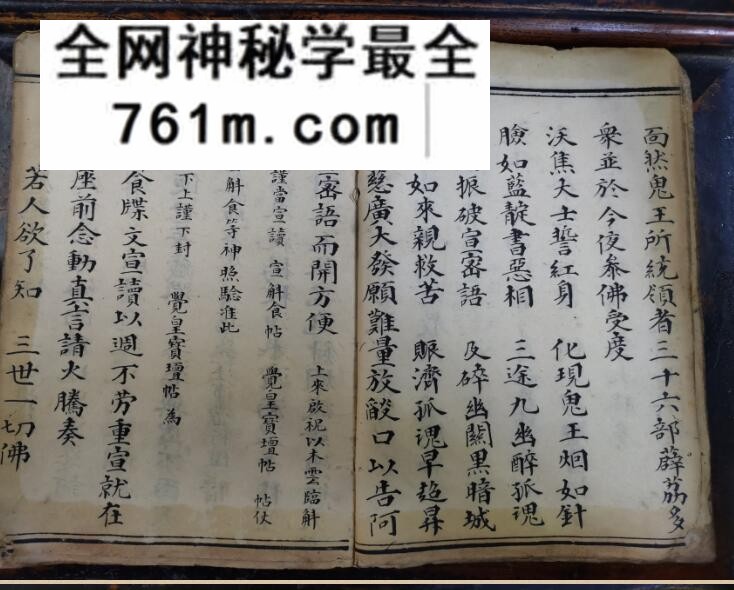 全网神秘学最全
761m.com
面然鬼王所統領者三十六部薜荔多
衆並於今夜叅佛受度
沃焦大士誓紅身 化現鬼王烟如針
臉如藍靛書惡相 三途九幽醉孤魂
振破宣密語 及碎幽關黑暗城
如來親救苦 賑濟孤魂早超昇
慈廣大發願難量放燄口以告阿
密語而開方便 上來啟祝以未雲臨斛
謹當宣讀 宣斛食帖 覺皇寶壇帖 帖仗
斛食等神照驗准此
下上謹下封 覺皇寶壇帖為
食牒文宣讀以週不劳重宣就在
座前念動真言請火騰奏
若人欲了知 三世一切佛